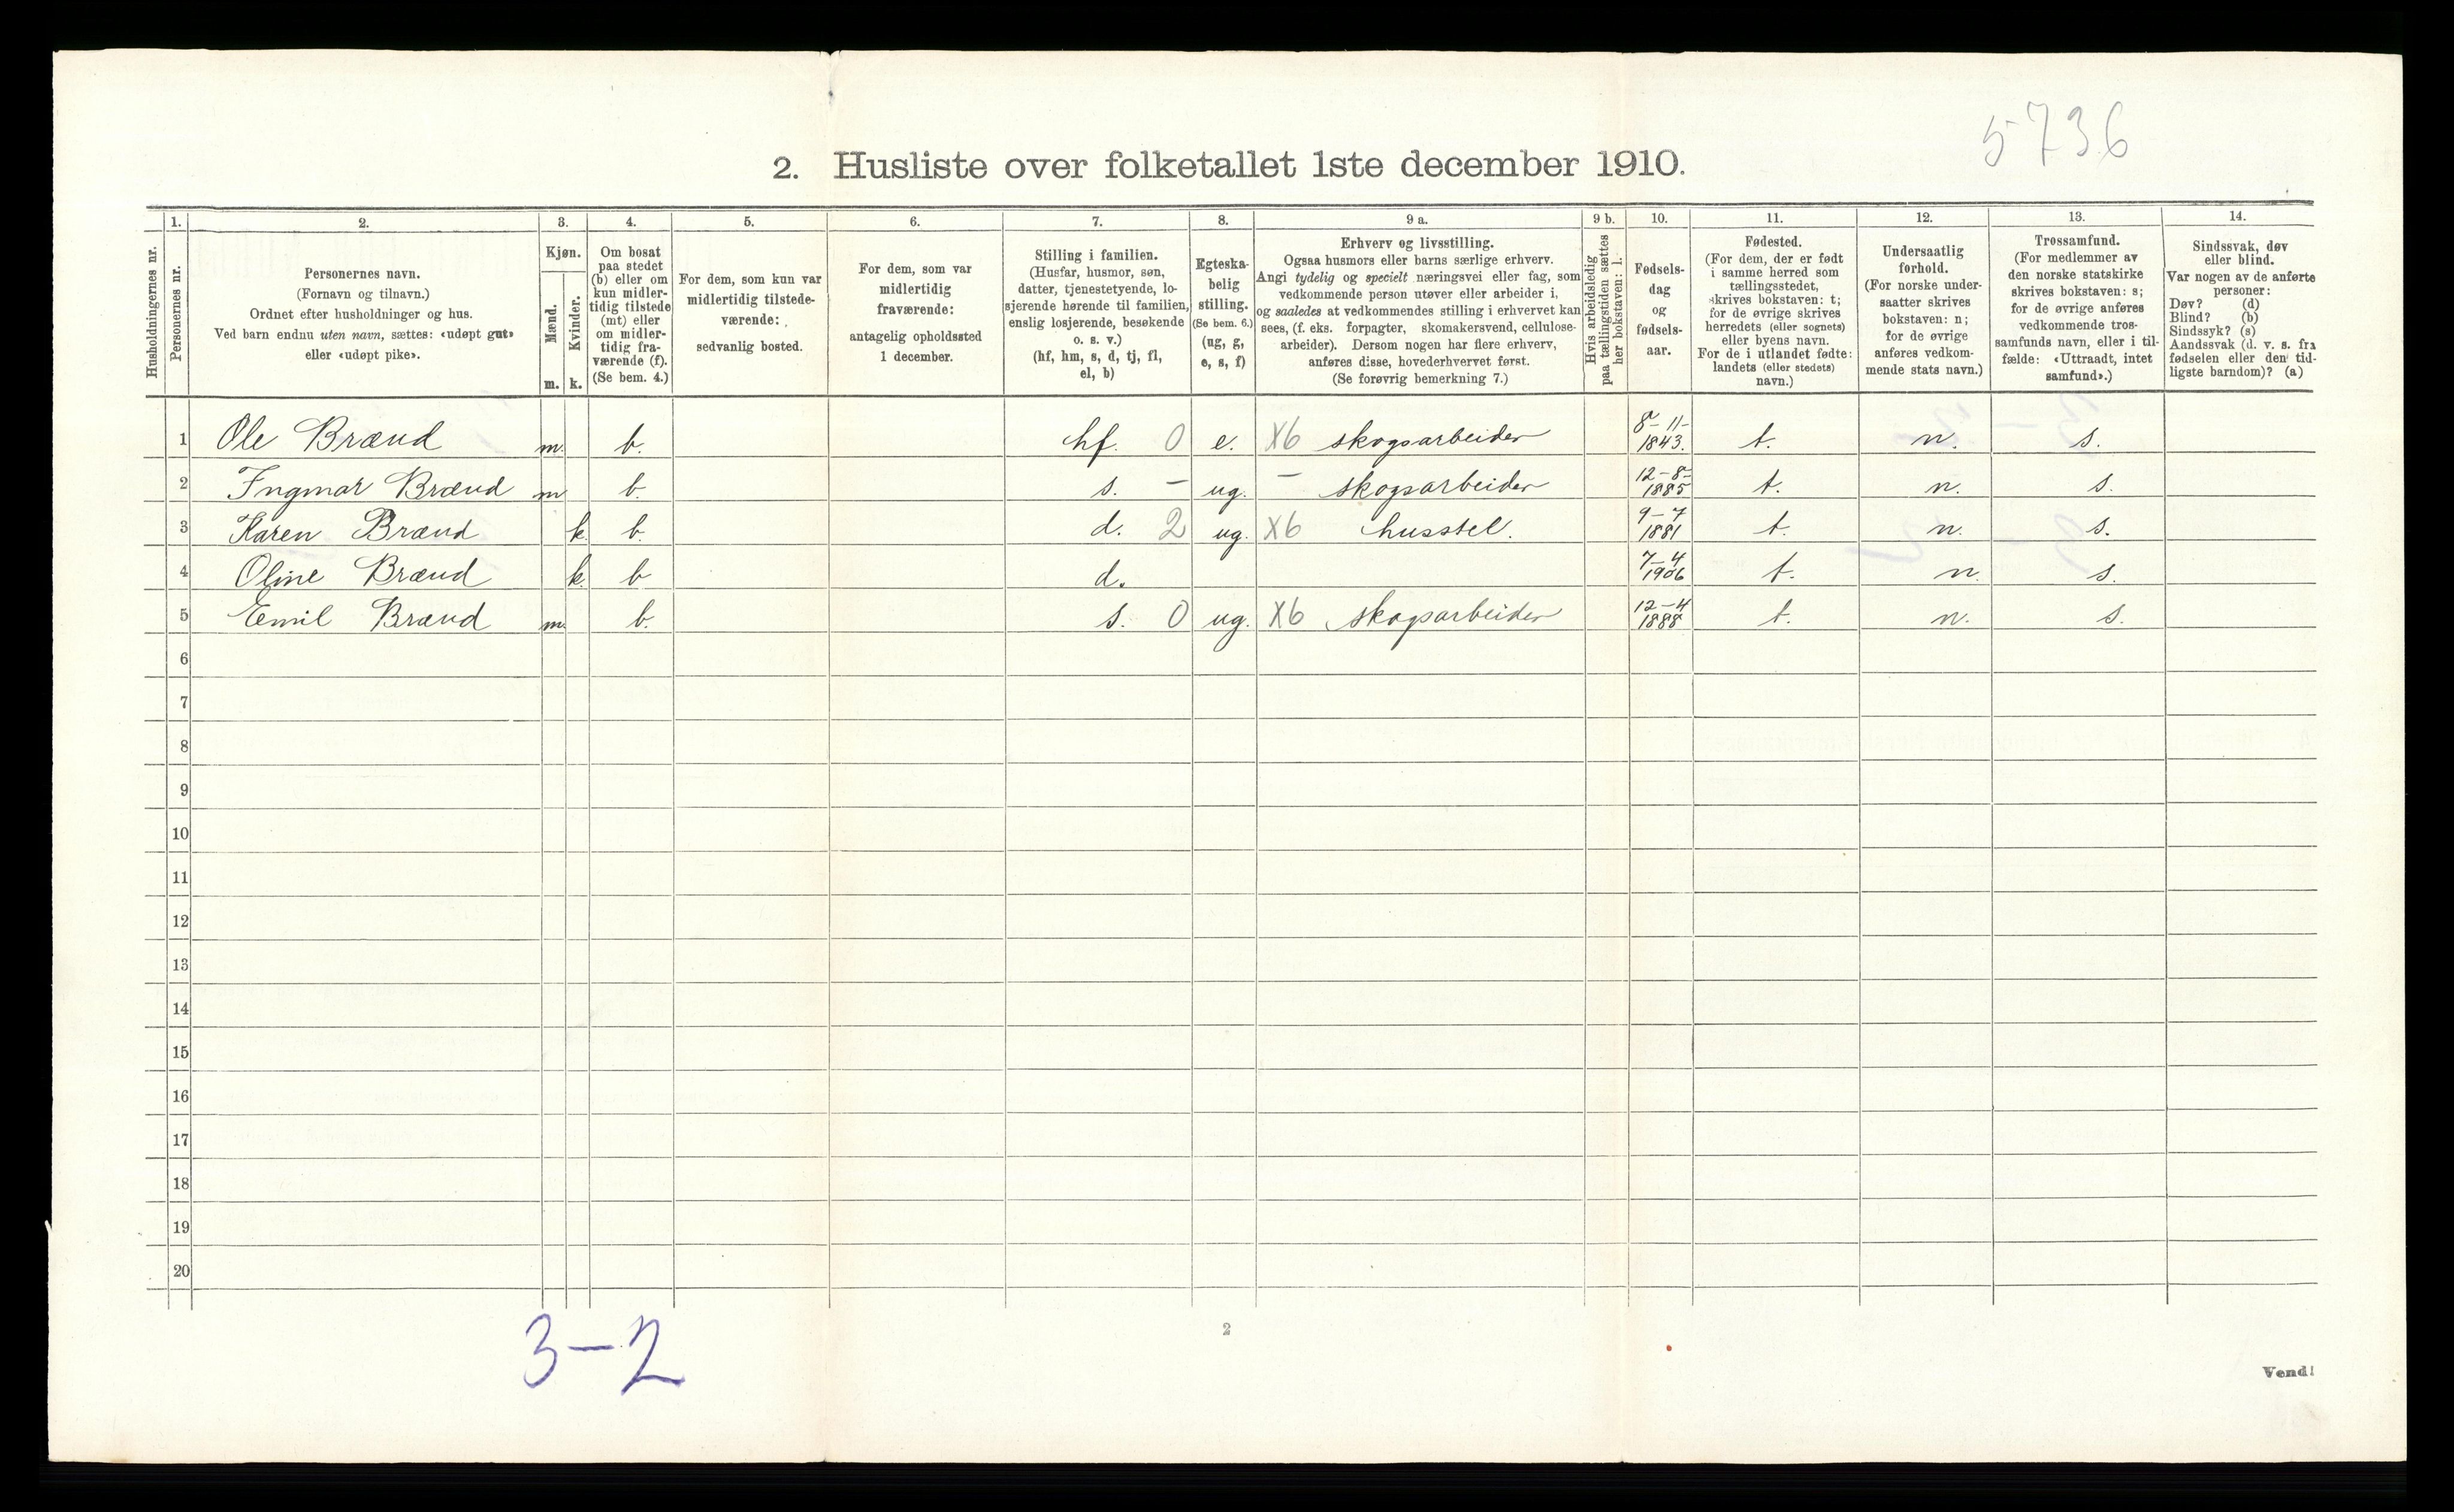 5736
2. Husliste over folketallet 1ste december 1910.
Husholdningernes nr.
1.
Personernes nr.
2.
Personernes navn.
(Fornavn og tilnavn.)
Ordnet efter husholdninger og hus.
Ved barn endnu uten navn, sættes: «udøpt gut»
eller «udøpt pike».
3.
Kjøn.
Mænd.
m.
Kvinder.
k.
4.
Om bosat
paa stedet
(b) eller om
kun midler-
tidig tilstede
(mt) eller
om midler-
tidig fra-
værende (f).
(Se bem. 4.)
5.
For dem, som kun var
midlertidig tilstede-
værende:
sedvanlig bosted.
6.
For dem, som var
midlertidig
fraværende:
antagelig opholdssted
1 december.
7.
Stilling i familien.
(Husfar, husmor, søn,
datter, tjenestetyende, lo-
sjerende hørende til familien,
enslig losjerende, besøkende
o. s. v.)
(hf, hm, s, d, tj, fl,
el, b)
8.
Egteska-
belig
stilling.
(Se bem. 6.)
(ug, g,
e, s, f)
9 a.
Erhverv og livsstilling.
Ogsaa husmors eller barns særlige erhverv.
Angi tydelig og specielt næringsvei eller fag, som
vedkommende person utøver eller arbeider i,
og saaledes at vedkommendes stilling i erhvervet kan
sees, (f. eks. forpagter, skomakersvend, cellulose-
arbeider). Dersom nogen har flere erhverv,
anføres disse, hovederhvervet først.
(Se forøvrig bemerkning 7.)
9 b.
Hvis arbeidsledig
paa tællingstiden sættes
her bokstaven: l.
10.
Fødsels-
dag
og
fødsels-
aar.
11.
Fødested.
(For dem, der er født
i samme herred som
tællingsstedet,
skrives bokstaven: t;
for de øvrige skrives
herredets (eller sognets)
eller byens navn.
For de i utlandet fødte:
landets (eller stedets)
navn.)
12.
Undersaatlig
forhold.
(For norske under-
saatter skrives
bokstaven: n;
for de øvrige
anføres vedkom-
mende stats navn.)
13.
Trossamfund.
(For medlemmer av
den norske statskirke
skrives bokstaven: s;
for de øvrige anføres
vedkommende tros-
samfunds navn, eller i til-
fælde: «Uttraadt, intet
samfund».)
14.
Sindssvak, døv
eller blind.
Var nogen av de anførte
personer:
Døv? (d)
Blind? (b)
Sindssyk? (s)
Aandssvak (d. v. s. fra
fødselen eller den tid-
ligste barndom)? (a)
1 Ole Brænd m. b. hf. 0 e. X6 skogsarbeider 8-11-1843. t. n. s.
2 Ingmar Brænd m b. s. - ug. - skogsarbeider 12-8-1885 t. n. s.
3 Karen Brænd k. b. d. 2 ug. X6 husstel. 9-7 1881 t. n. s.
4 Oline Brænd k. b d. 7-4 1906 t. n. s.
5 Emil Brænd m. b. s. 0 ug. X6 skogsarbeider 12-4 1888 t. n. s.
6
7
8
9
10
11
12
13
14
15
16
17
18
19
20
3-2
2
Vend!